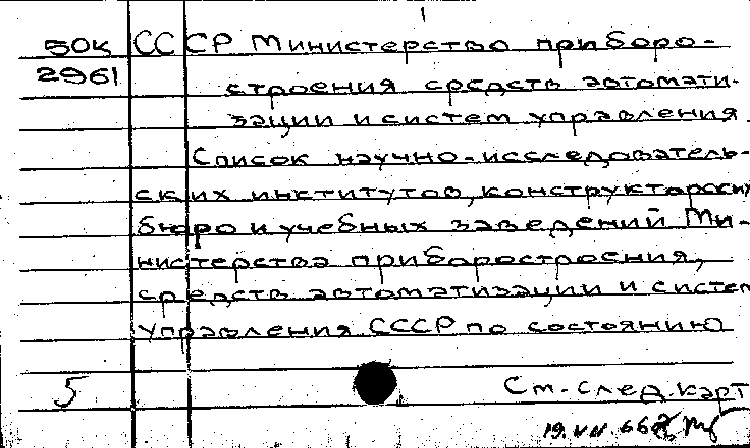 50к СССР Министерство приборо-
2961 строения средств автомати-
зации и систем управления.
Список научно-исследователь-
ских институтов, конструкторских
бюро и учебных заведений Ми-
нистерства приборостроения,
средств автоматизации и систем
управления СССР по состоянию
5 См. след. карт
19.VII 66